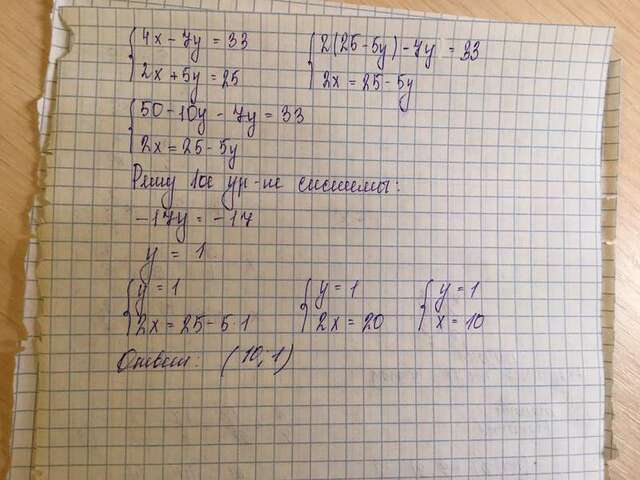 4x - 7y = 33
2x + 5y = 25
2(25 - 5y) - 7y = 33
2x = 25 - 5y
50 - 10y - 7y = 33
2x = 25 - 5y
Решу 1ое ур-ие системы:
-17y = -17
y = 1
y = 1
2x = 25 - 5·1
y = 1
2x = 20
y = 1
x = 10
Ответ: (10; 1)